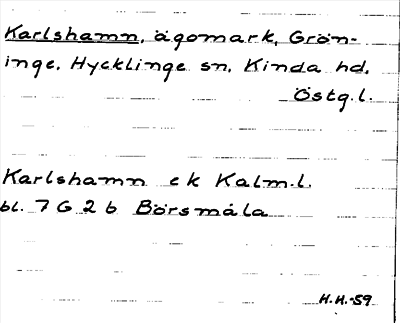 Karlshamn, ägomark, Grön-
inge. Hycklinge sn. Kinda hd.
Östg.l.
Karlshamn ek Kalm.l.
bl. 7 G 2 b Börsmåla
H.H.-59